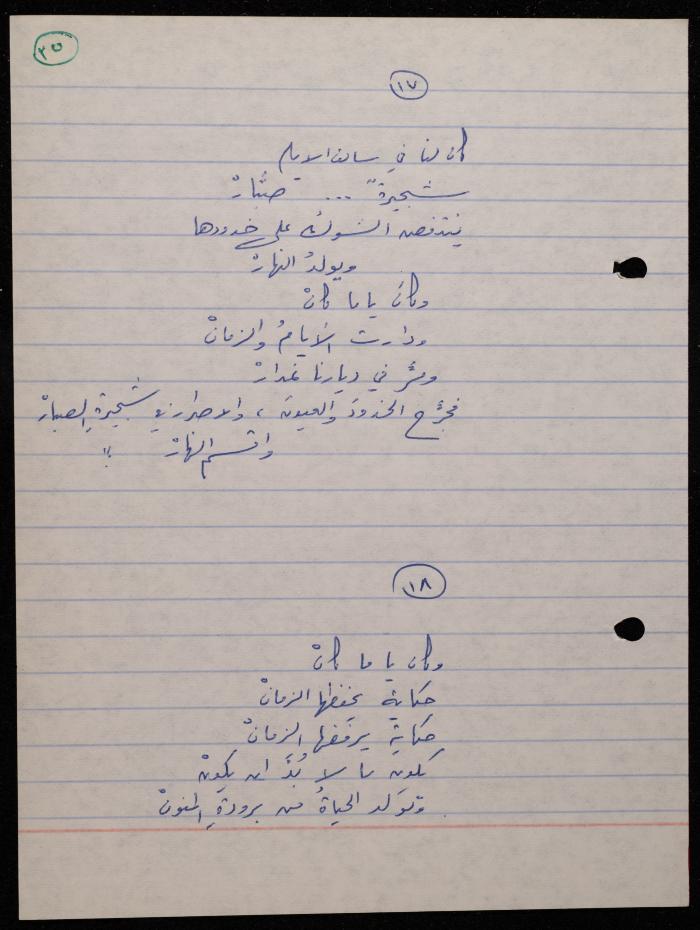 ٢٥
١٧
كان لنا في سالف الايام
شجيرةٌ ... صبَّارْ
ينتفض الشوكُ على خدودها
ويولدُ النهارْ
وكانَ ياما كانْ
ودارت الأيامُ والزمانْ
ومرَّ في ديارنا غدارْ
فجرَّح الخدودَ والعيونَ ، والاصرار في شجيرةِ الصبارْ
واقتسم النهارْ !!
١٨
وكان يا ما كانْ
حكاية يحفظها الزمانْ
حكاية يرفضها الزمانْ
يكون ما لا بُدَّ ان يكونْ
وتولد الحياةُ من برودةِ المنونْ